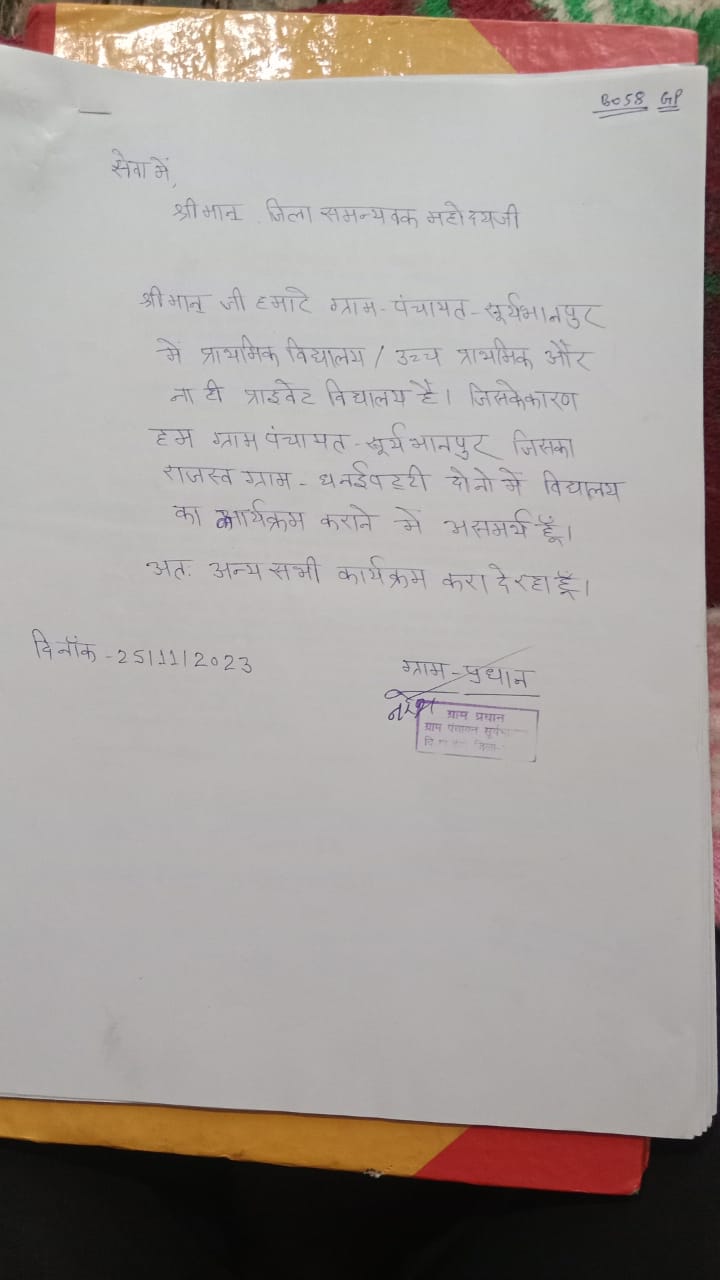 B058 GP
सेवा में,
श्रीमान् जिला समन्यवक महोदयजी
श्रीमान् जी हमारे ग्राम-पंचायत-सूर्यभानपुर
में प्राथमिक विद्यालय / उच्च प्राथमिक और
ना ही प्राइवेट विद्यालय है। जिसकेकारण
हम ग्राम पंचायत-सूर्यभानपुर जिसका
राजस्व ग्राम-धनईपट्टी दोनो में विद्यालय
का कार्यक्रम कराने में असमर्थ हूँ।
अतः अन्य सभी कार्यक्रम करा दे रहा हूँ।
दिनॉक-25/11/2023
ग्राम-प्रधान
ग्राम प्रधान
ग्राम पंचायत